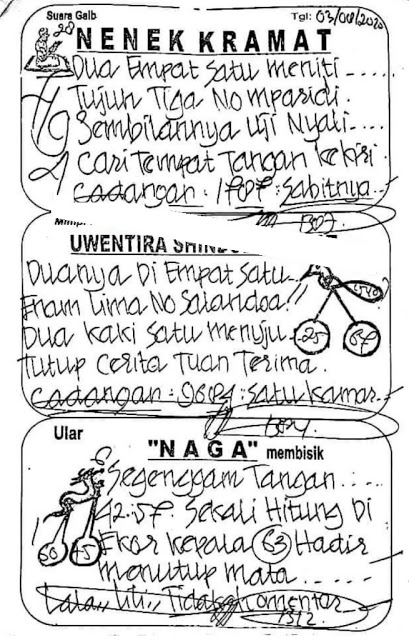 Suara Gaib
Tgl: 03/08/2020
28
NENEK KRAMAT
Dua Empat Satu meniti.....
Tujuh Tiga No mpasidi.
Sembilannya Uji Nyali....
Cari Tempat Tangan Kekiri
Cadangan: 1787: Sabitnya
UWENTIRA
Duanya Di Empat Satu
Enam Lima No Salandoa!!
Dua Kaki Satu menuju
25
Tutup Cerita Tuan Terima.
Cadangan: : Satu Kamar
Ular
"NAGA" membisik
Segenggam Tangan.....
42.57. Sekali Hitung Di
Ekor Kepala 63 Hadir
menutup mata......
60 45
Lala,, Lili,, Tidak Komentar